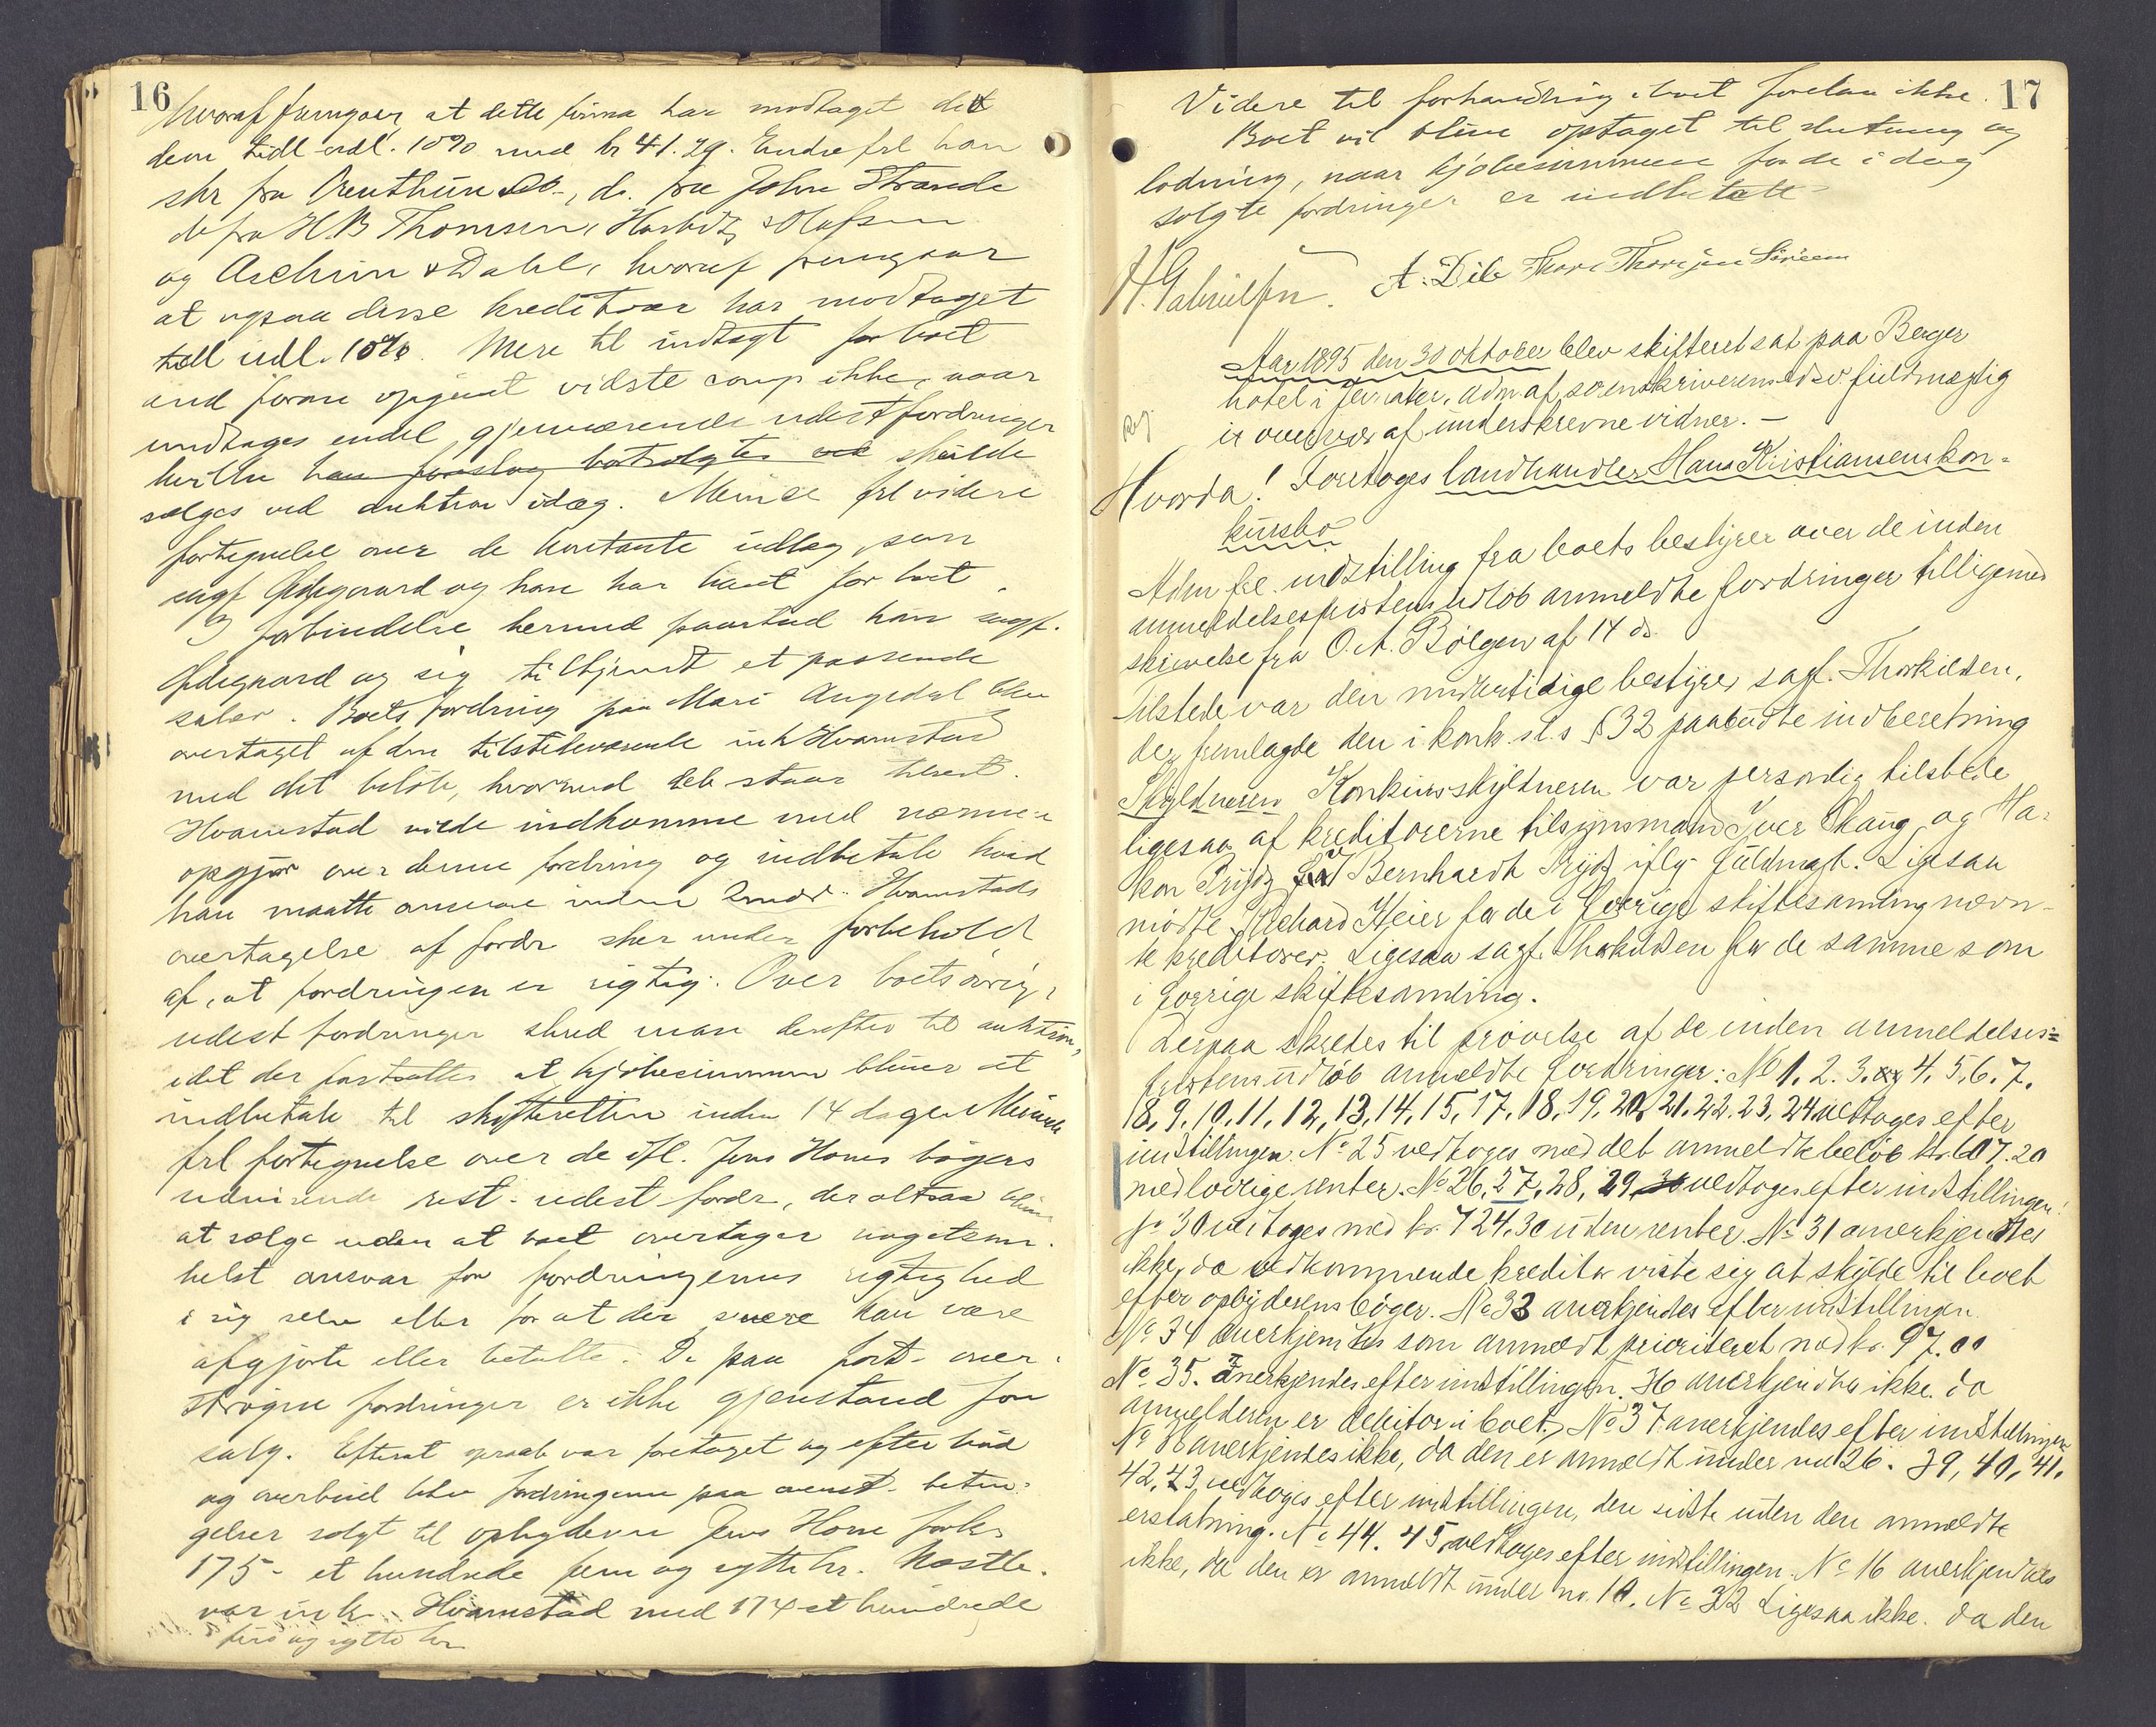 16
hvoraf fremgaar, at dette firma har modtaget det
dem tidl udl. 10% med kr 41.29. Endv frl han
skr fra Orenthun &Co-, do. fra John Strande
do fra H B Thomsen, Harbitz & Olafsen
og Aschim & Dahl, hvoraf fremgaar
at ogsaa disse kreditorer har modtaget
tidl udl. 10%. Mere til indtægt for boet
end foran opgivet vidste comp ikke, naar
undtages endel gjenværende udest fordringer
hvilke han foreslog bortsolgtes ved skulde
sælges ved auktion idag. Meinse frl videre
fortegnelse over de kontante udlæg, som
sagf Ødegaard og han har havt for boet.
I forbindelse hermed paastod han sagf.
Ødegaard og sig tilkjendt et passende
salær. Boets fordring paa Mari Angedal blev
overtaget af den tilstedeværende ink Hvamstad
med det beløb, hvormed den staar tilrest.
Hvamstad vilde indkomme med nærmere
opgjør over denne fordring og indbetale hvad
han maatte ansvare inden 2 mdr. Hvamstads
overtagelse af fordr sker under forbehold
af, at fordringen er rigtig. Over boets øvrige
udest fordringer skred man derefter til auktion,
idet der fastsattes at kjøbesummen bliver at
indbetale til skifteretten inden 14 dage. Meinse
frl fortegnelse over de ifl. Jens Hones bøger
udvisende rest. udest fordr, der altsaa bliver
at sælge uden at boet overtager nogetsom-
helst ansvar for fordringernes rigtighed
i sig selv eller for at der snere kan være
afgjorte eller betalte. De paa fort. over-
strøgne fordringer er ikke gjenstand for
salg. Efterat opraab var foretaget og efter bud
og overbud blev fordringerne paa ovenst. betin-
gelser solgt til opbyderen Jens Hone for kr
175- et hundrede fem og sytti kr. Næstb.
var ink. Hvamstad med 174 et hundrede
fire og sytti kr
17
Videre til forhandling i boet forelaa ikke.
Boet vil blive optaget til slutning og
lodning, naar kjøbesummene for de i dag
solgte fordringer er indbetalt
H. Gabrielsen. A. Dile Thore Thoresen Siveen
Aar 1895 den 30 oktober blev skifteret sat paa Berger
hotel i Jevnaker, adm af sorenskriverens edsv. fuldmægtig
i overvær af underskrevne vidner. —
Hvorda! Foretoges landhandler Hans Kristiansens kon-
kursbo
Adm frl. indstilling fra boets bestyrer over de inden
anmeldelsesfristens udløb anmeldte fordringer tilligemed
skrivelse fra O. A. Bølgen af 14 ds.
Tilstede var den midlertidige bestyrer sagf. Thorkildsen,
der fremlagde den i konk. sl.s §32 paabudte indberetning
Skyldneren Konkursskyldneren var personlig tilstede
ligesaa af kreditorerne tilsynsmand Iver Skaug og Ha-
kon Prydz for Bernhardt Prydz iflg. fuldmagt. Ligesaa
mødte Richard Heier for de i forrige skiftesamling nævn-
te kreditorer. Ligesaa sagf. Thorkildsen for de samme som
i forrige skiftesamling.
Derpaa skredes til prøvelse af de inden anmeldelses-
fristens udløb anmeldte fordringer: No 1. 2. 3. og 4. 5. 6. 7.
8, 9, 10, 11, 12, 13, 14, 15, 17, 18, 19, 20, 21, 22, 23, 24 vedtoges efter
indstillingen. No 25 vedtoges med det anmeldte beløb kr. 607.20
med lovlige renter. No 26, 27, 28, 29, 30 vedtoges efter indstillingen.
No 30 vedtoges med kr. 724,30 uden renter. No 31 anerkjendtes
ikke, da vedkommende kreditor viste sig at skylde til boet
efter opbyderens bøger. No 33 anerkjendes efter indstillingen
No 34 anerkjendtes som anmeldt prioriteret med kr. 97.00
No. 35. anerkjendes efter indstillingen. 36 anerkjendtes ikke. da
anmelderen er debitor i boet. No 37 anerkjendes efter indstillingen
No 38 anerkjendes ikke, da den er anmeldt under no 26. 39, 40, 41.
42, 43 vedtoges efter indstillingen, den sidste uden den anmeldte
erstatning. No 44. 45 vedtoges efter indstillingen. No 16 anerkjendtes
ikke, da den er anmeldt under no. 10. No 32 Ligesaa ikke. da den